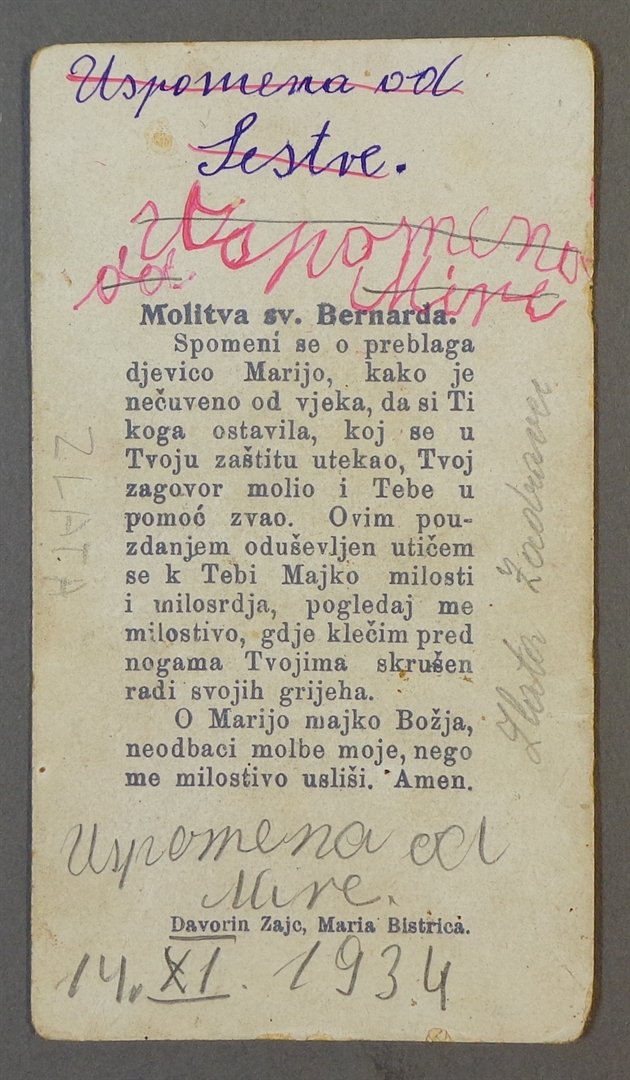 Uspomena od
Sestre.
Uspomena
od Mire
Molitva sv. Bernarda.
Spomeni se o preblaga
djevico Marijo, kako je
nečuveno od vjeka, da si Ti
koga ostavila, koj se u
Tvoju zaštitu utekao, Tvoj
zagovor molio i Tebe u
pomoć zvao. Ovim pou-
zdanjem oduševljen utičem
se k Tebi Majko milosti
i milosrdja, pogledaj me
milostivo, gdje klečim pred
nogama Tvojima skrušen
radi svojih grijeha.
O Marijo majko Božja,
neodbaci molbe moje, nego
me milostivo usliši. Amen.
ZLATA
Zlata
Uspomena od
Mire.
Davorin Zajc, Maria Bistrica.
14. XI. 1934